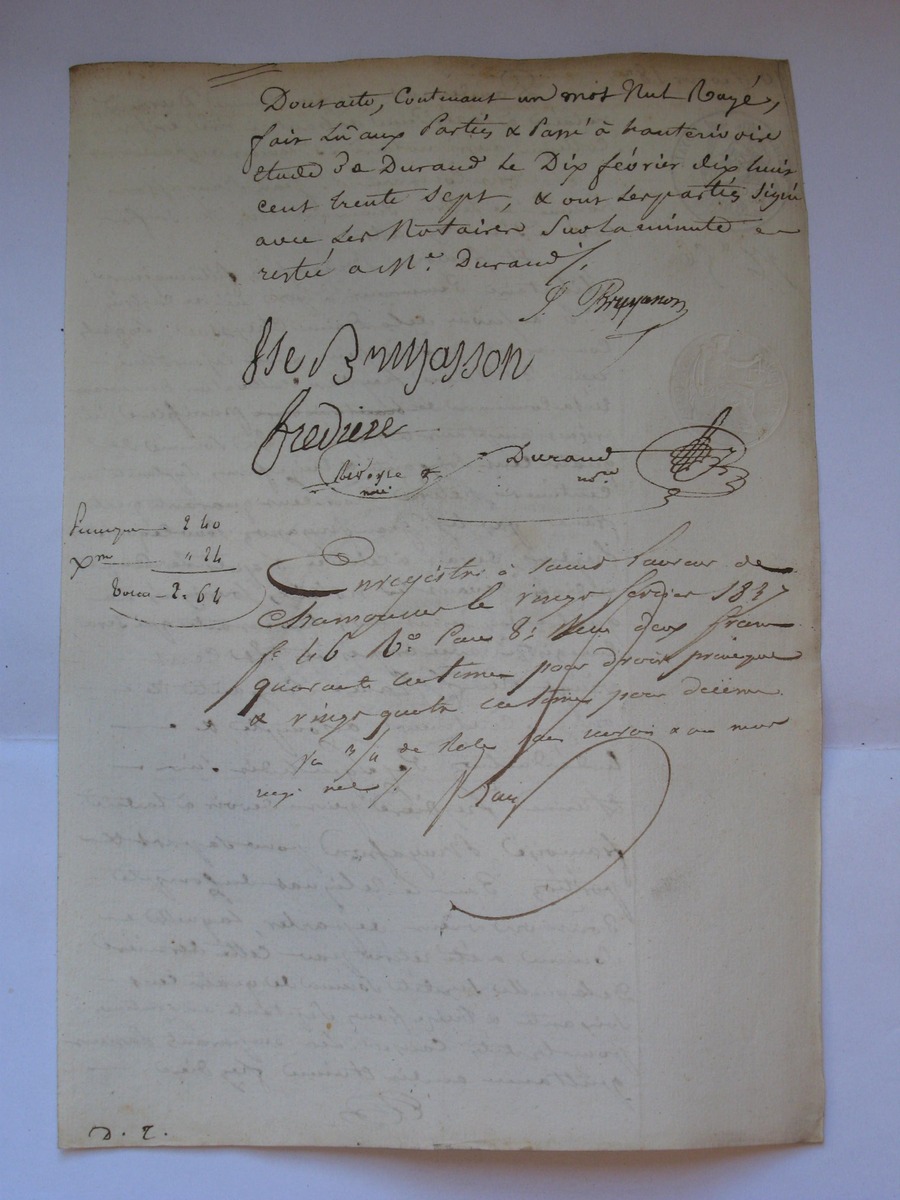 Dont acte, Contenant un mot Nul Rayé,
fait Lu aux Parties & Passé à hauterivoire
étude de Durand Le Dix février dix huit
cent trente Sept, & ont Les parties Signé
avec Les Notaires Sur la minute
restée a Me. Durand
J. Bruyasson
Bruyasson
Durand
nre
2 40
Xme " 24
Total 2. 64
Enregistré à Saint Laurent de
Chamousset le vingt février 1837
fo 46 Vo Case 8. Reçu deux francs
quarante centimes pour droit
& vingt quatre centimes pour décime
D. T.